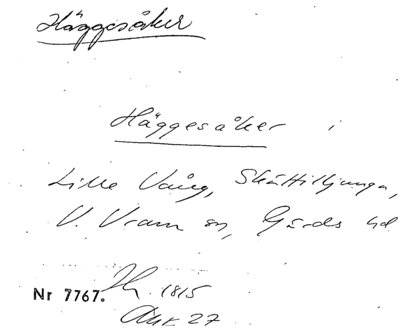 Häggesåker
Häggesåker i
Lille Vång, Skättiljunga,
V. Vram sn, Gärds hd
Nr 7767. 1815
27